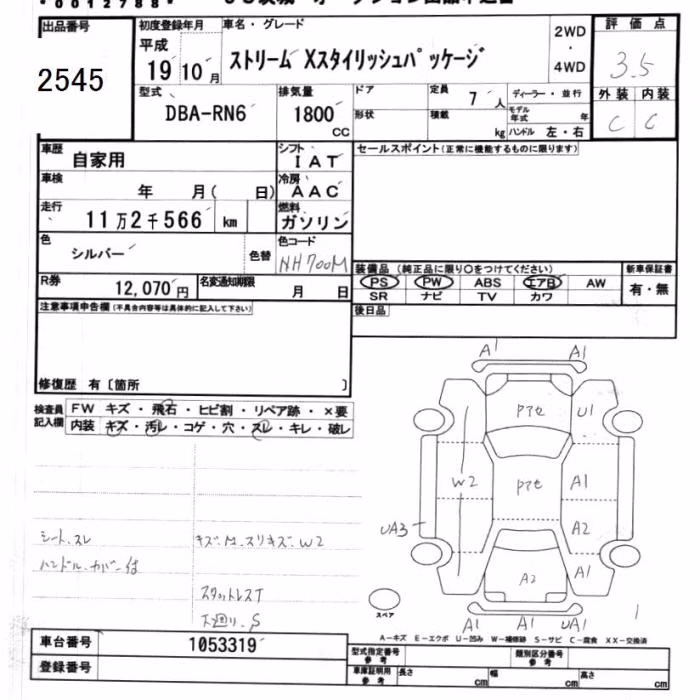 *0012788*
出品番号
2545
初度登録年月
平成
19 10 月
車名・グレード
ストリーム Xスタイリッシュパッケージ
2WD
・
4WD
評価点
3.5
外装 内装
C C
型式
DBA-RN6
排気量
1800
CC
ドア
形状
定員 7 人
積載 kg
ディーラー・並行
モデル年式 年
ハンドル 左・右
車歴
自家用
シフト
IAT
車検
年 月( 日)
冷房
AAC
走行
11万2千566 km
燃料
ガソリン
色
シルバー
色替
色コード
NH700M
R券
12,070円
名変通知期限
月 日
セールスポイント(正常に機能するものに限ります)
装備品 (純正品に限り○をつけてください)
PS PW ABS エアB AW
SR ナビ TV カワ
新車保証書
有・無
後日品
注意事項申告欄(不具合内容等は具体的に記入して下さい)
修復歴 有〔箇所 〕
検査員
記入欄
FW キズ・飛石・ヒビ割・リペア跡・×要
内装 キズ・汚レ・コゲ・穴・スレ・キレ・破レ
シート.スレ
ハンドル.カバー付
キズ.M.スリキズ.W2
スタットレスT
下廻り.S
A1 A1
Pta U1
W2 Pta A1
UA3 A2
A2 A1
A1 A1 UA1
スペア
1
A-キズ E-エクボ U-凹み W-補修跡 S-サビ C-腐食 XX-交換済
車台番号
1053319
登録番号
型式指定番号
参考
類別区分番号
参考
車庫証明用
参考
長さ cm
幅 cm
高さ cm